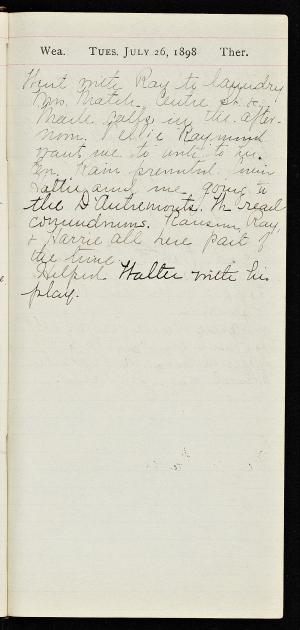 Wea. TUES. JULY 26, 1898 Ther.
Went with Ray to laundry
Mrs. Match. Centre St. &
Maile calls in the after-
noon. Nellie Raymond
want me to write to her.
Katie and me going to
the D'Autremonts. We read
conundrums. Ransom, Ray,
& Harrie all here part of
the time.
Helped Walter with his
play.